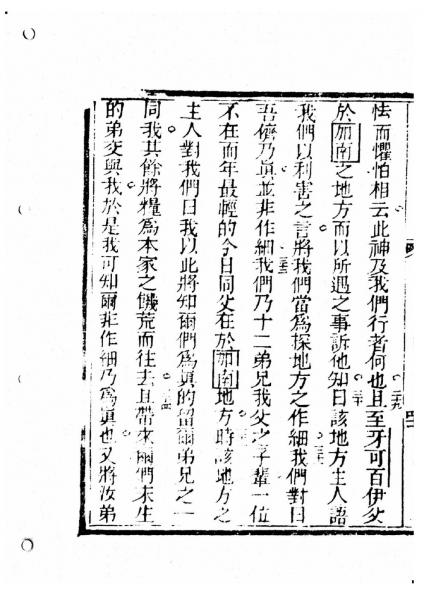 怯而懼怕相云此神及我們行者何也且至牙可百伊父
於加南之地方而以所遇之事訴他知曰該地方主人語
我們以利害之言將我們當爲探地方之作細我們對曰
吾儕乃眞並非作細我們乃十二弟兄我父之子輩一位
不在而年最輕的今日同父在於加南地方時該地方之
主人對我們曰我以此將知爾們爲眞的留爾弟兄之一
同我其餘將糧爲本家之饑荒而往去且帶來爾們末生
的弟交與我於是我可知爾非作細乃爲眞也又將汝弟